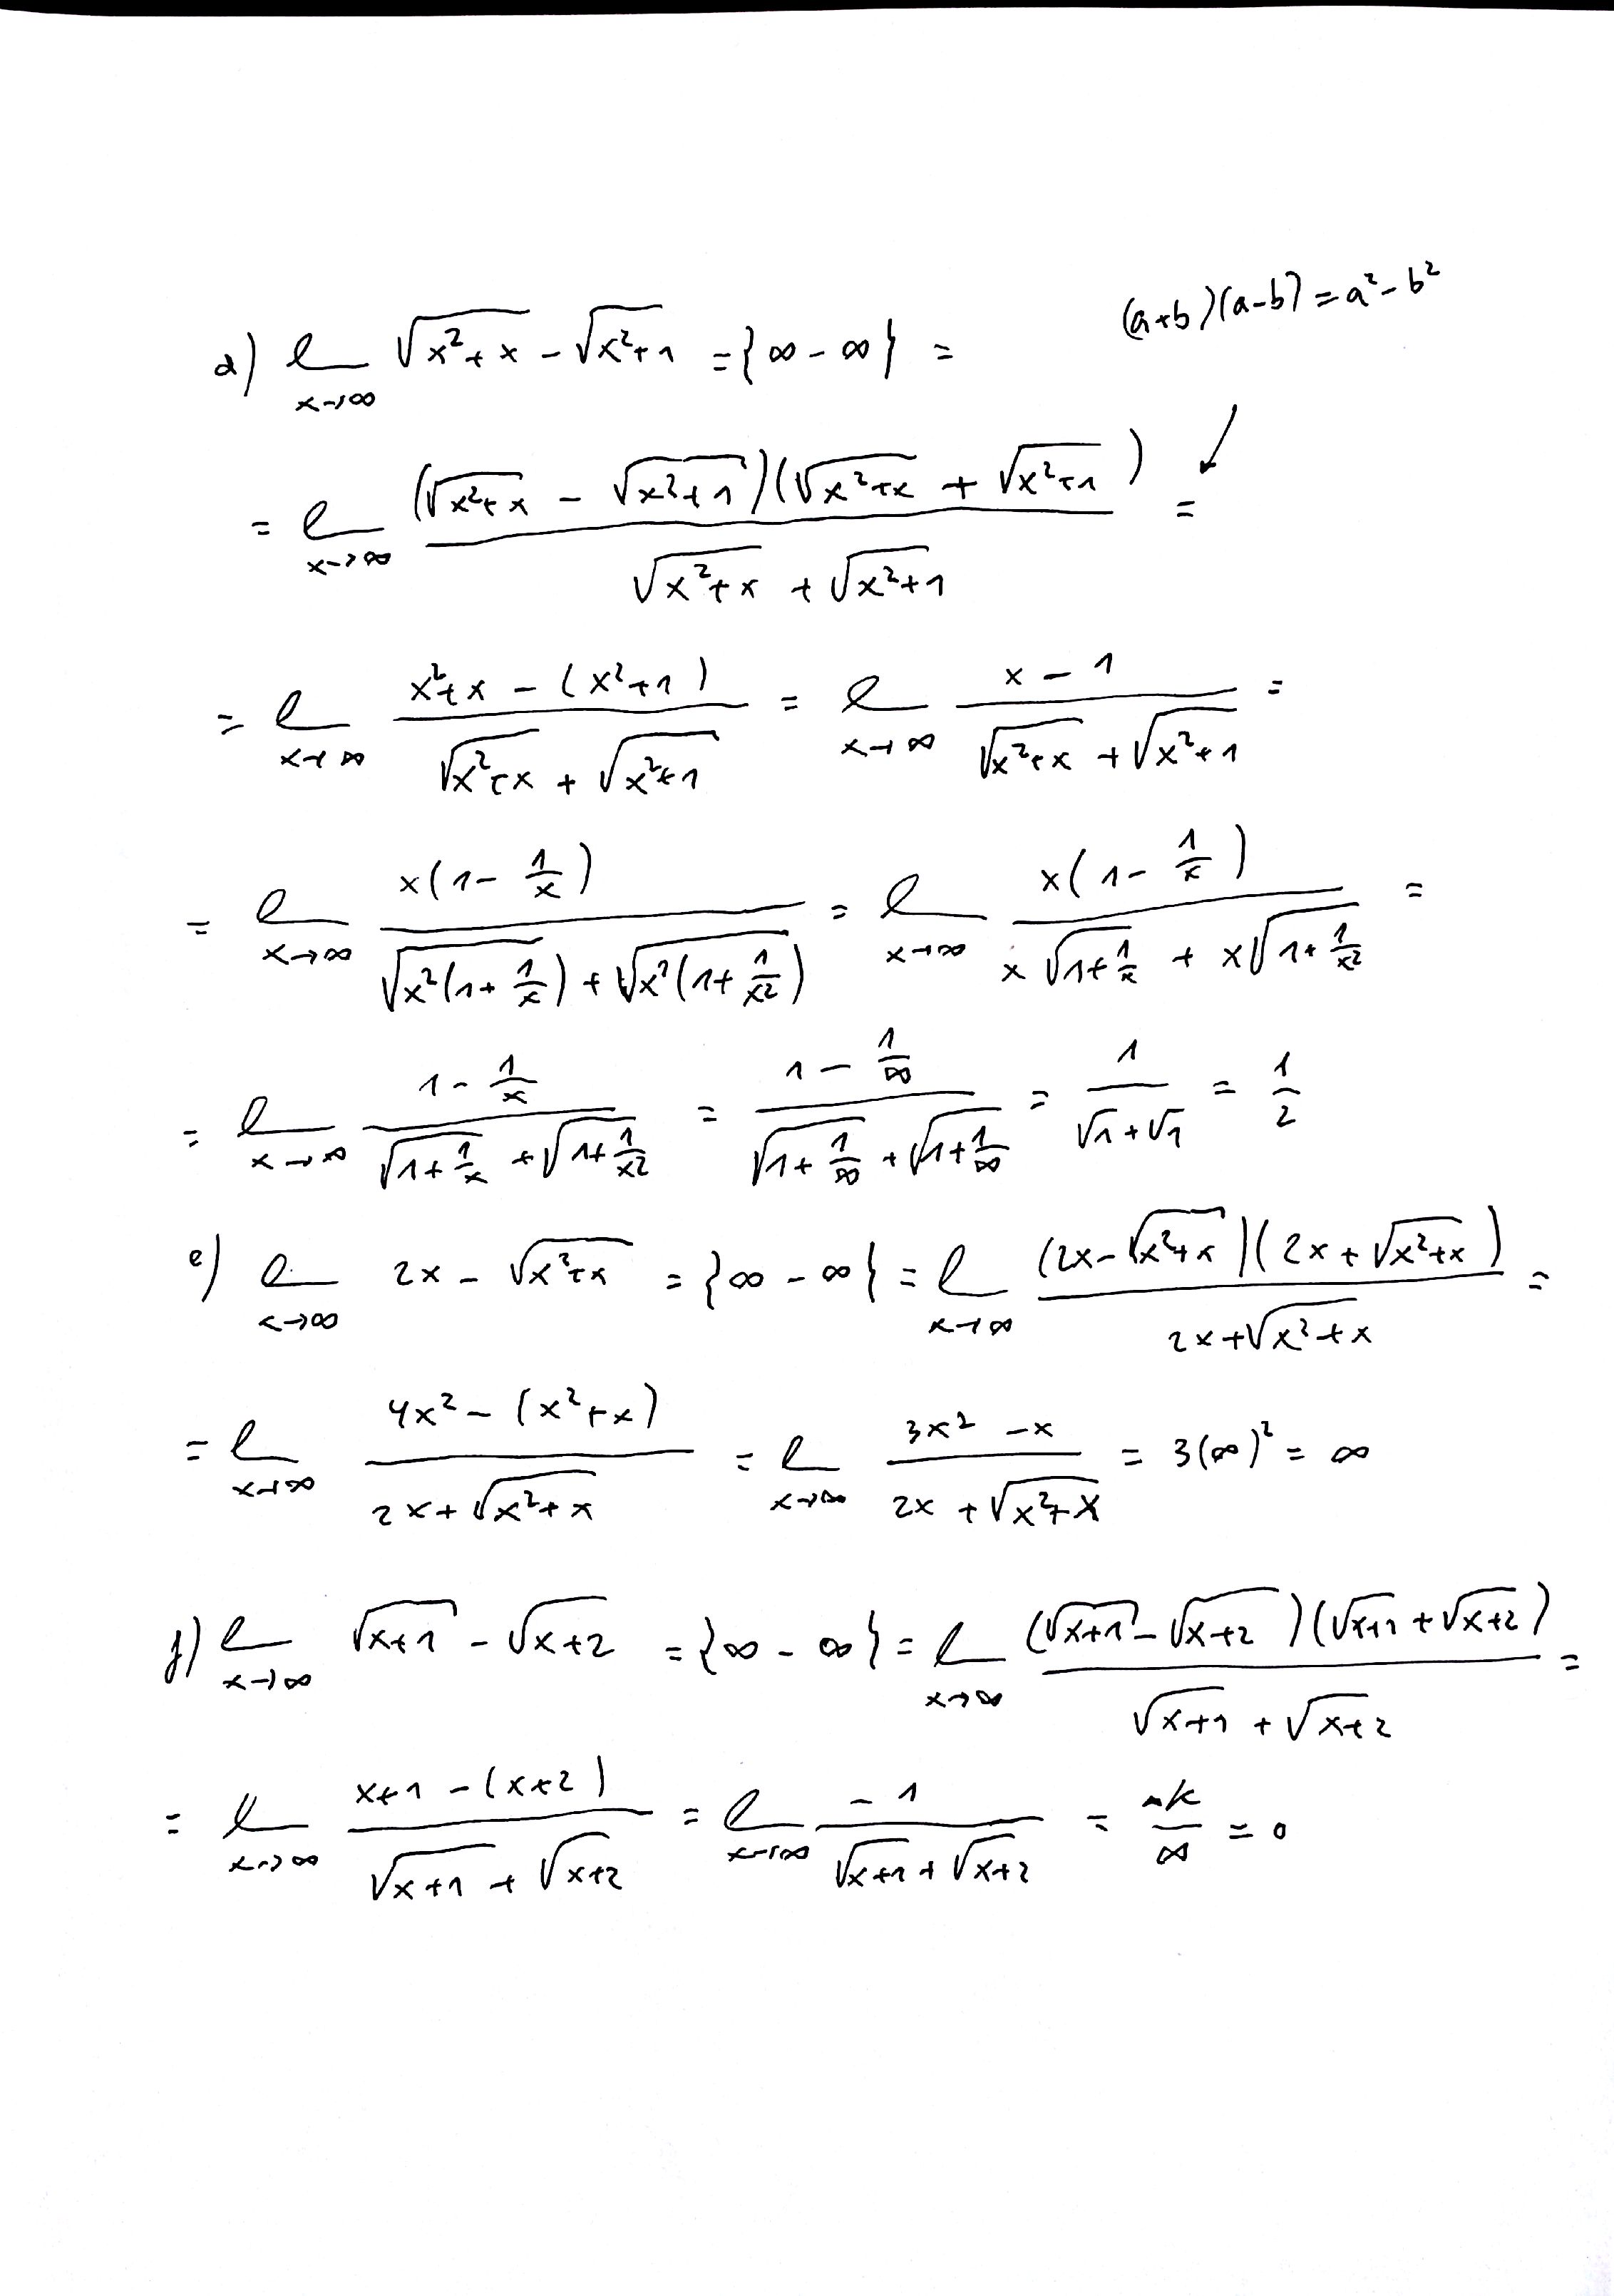 (a+b)(a-b) = a² - b²
d) l_{x→∞} √(x²+x) - √(x²+1) = {∞ - ∞} =
= l_{x→∞} (√(x²+x) - √(x²+1))(√(x²+x) + √(x²+1)) / (√(x²+x) + √(x²+1)) =
= l_{x→∞} (x²+x - (x²+1)) / (√(x²+x) + √(x²+1)) = l_{x→∞} (x - 1) / (√(x²+x) + √(x²+1)) =
= l_{x→∞} x(1 - 1/x) / (√(x²(1+1/x)) + √(x²(1+1/x²))) = l_{x→∞} x(1 - 1/x) / (x√(1+1/x) + x√(1+1/x²)) =
= l_{x→∞} (1 - 1/x) / (√(1+1/x) + √(1+1/x²)) = (1 - 1/∞) / (√(1+1/∞) + √(1+1/∞)) = 1 / (√1+√1) = 1/2
e) l_{x→∞} 2x - √(x²+x) = {∞ - ∞} = l_{x→∞} (2x - √(x²+x))(2x + √(x²+x)) / (2x+√(x²+x)) =
= l_{x→∞} (4x² - (x²+x)) / (2x+√(x²+x)) = l_{x→∞} (3x² - x) / (2x + √(x²+x)) = 3(∞)² = ∞
f) l_{x→∞} √(x+1) - √(x+2) = {∞ - ∞} = l_{x→∞} (√(x+1) - √(x+2))(√(x+1) + √(x+2)) / (√(x+1) + √(x+2)) =
= l_{x→∞} (x+1 - (x+2)) / (√(x+1) + √(x+2)) = l_{x→∞} -1 / (√(x+1) + √(x+2)) = /∞ = 0